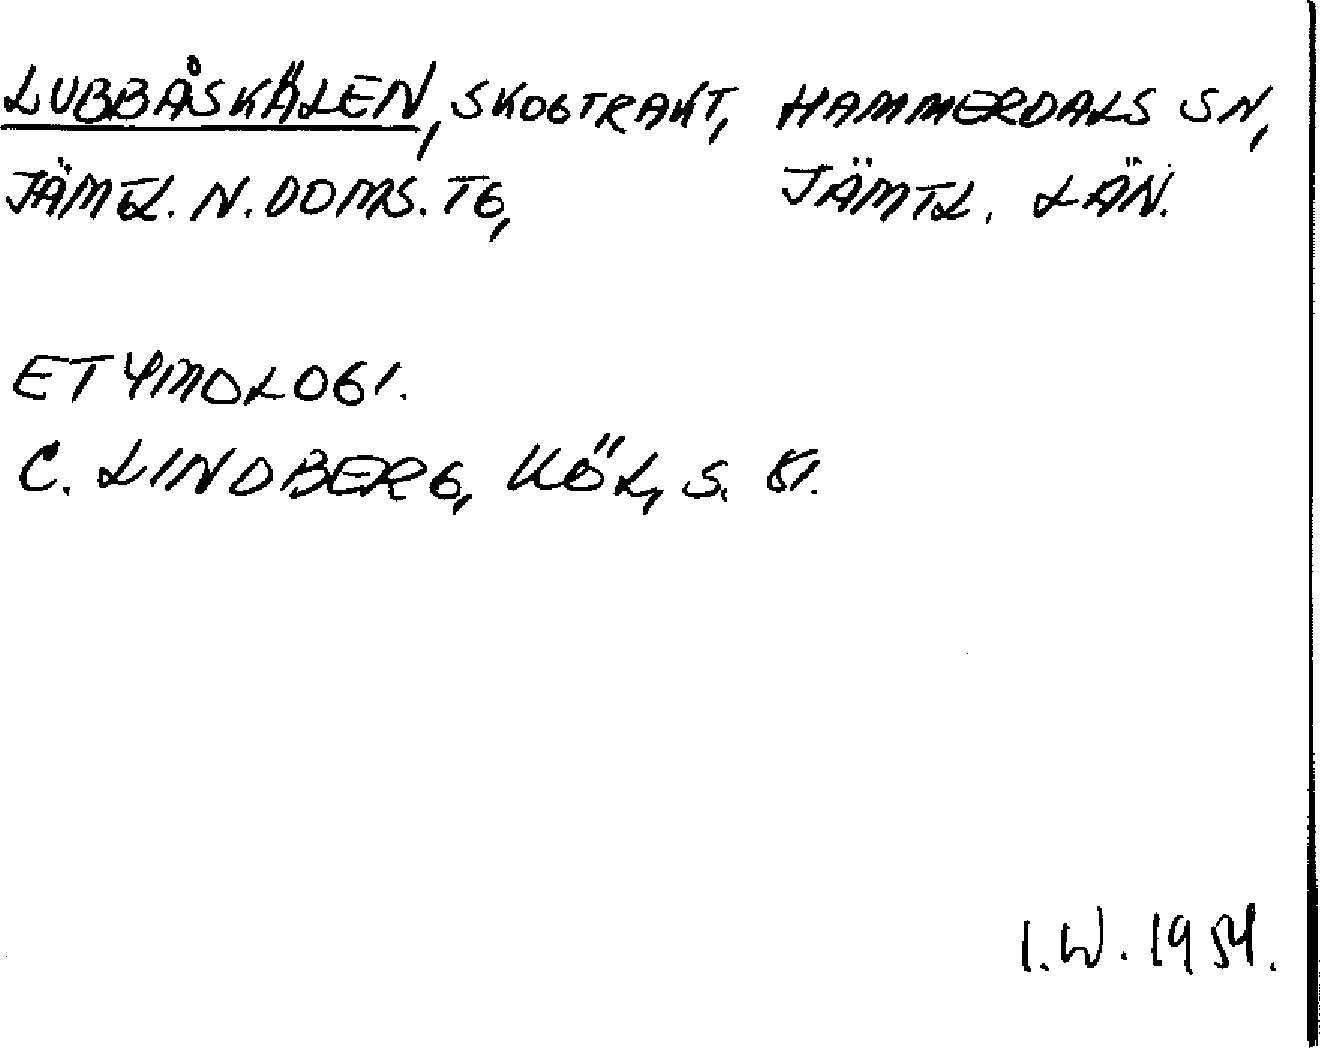 LUBBÅSKÄLEN, SKOGTRAKT, HAMMERDALS SN,
JÄMTL. N. DOMS. TG, JÄMTL. LÄN.
ETYMOLOGI.
C. LINDBERG, KÖL, S. 51.
I.W. 1954.